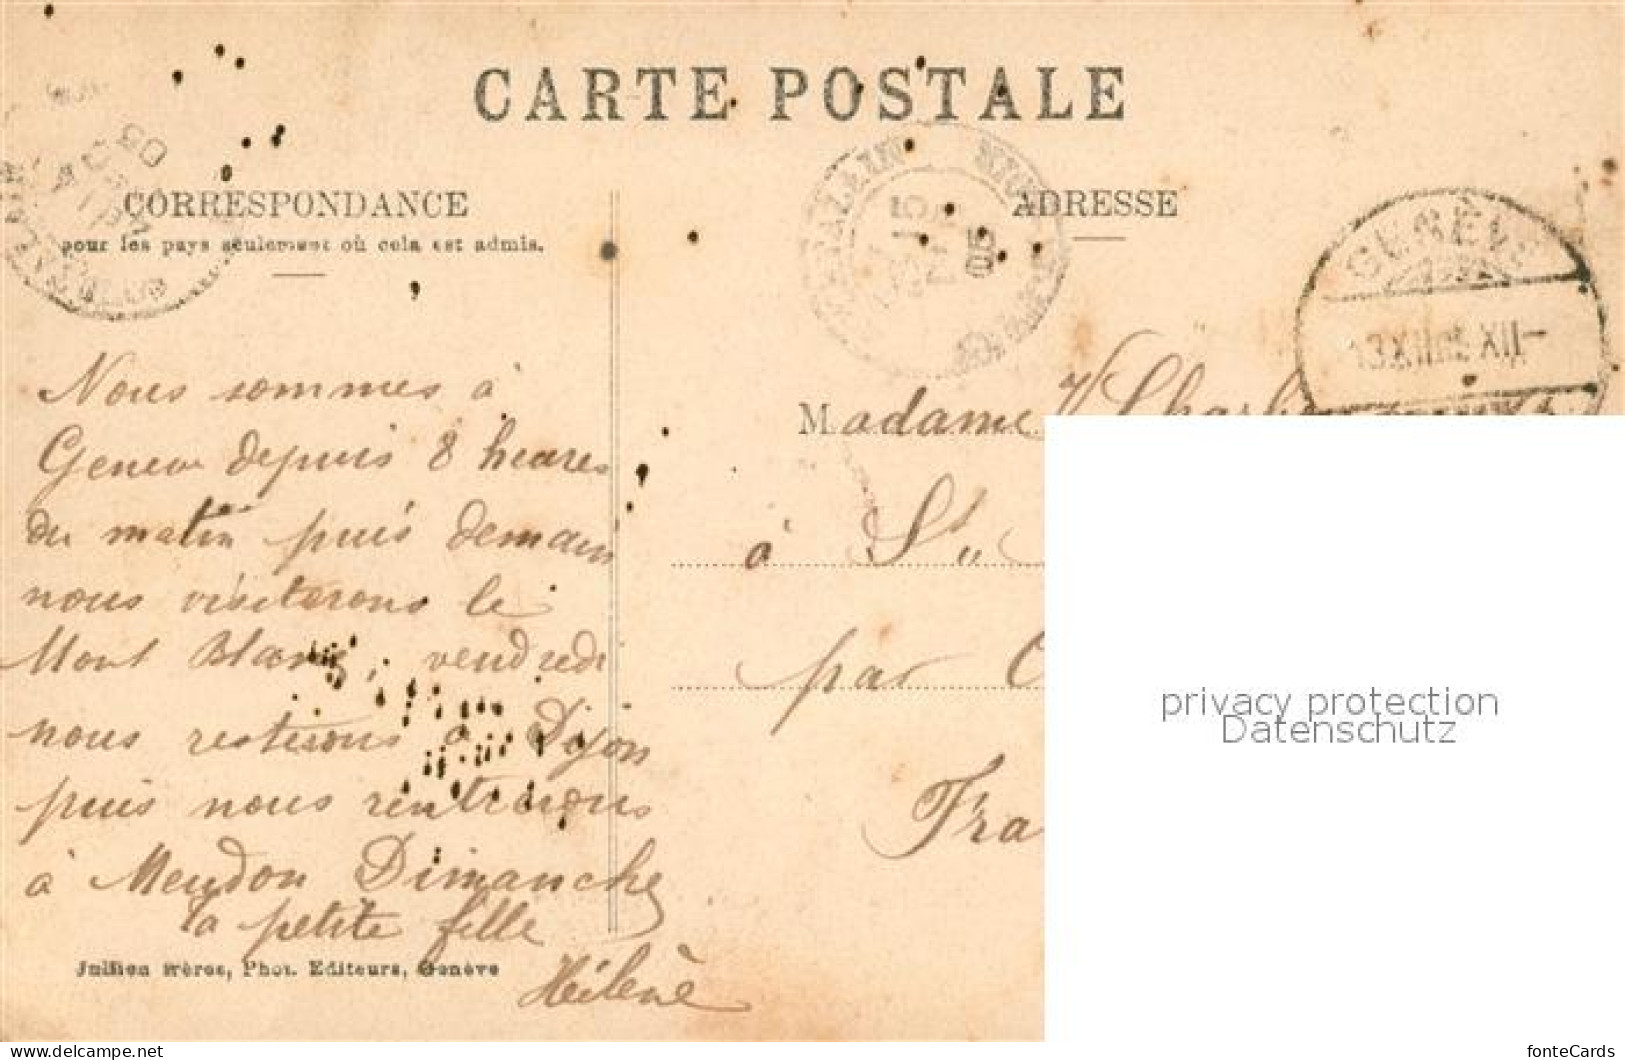 CARTE POSTALE
CORRESPONDANCE
pour les pays seulement où cela est admis.
ADRESSE
GENÈVE
Nous sommes à
Geneve depuis 8 heures
du matin puis demain
nous visiterons le
Mont Blanc, vendredi
nous resterons à Dijon
puis nous rentrerons
à Meudon Dimanche
la petite fille
Hélène
Jullien frères, Phot. Editeurs, Genève
Madame
à St
par
Fra
privacy protection
Datenschutz
www.delcampe.net
fonteCards